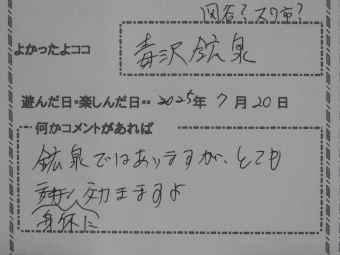 よかったよココ
毒沢鉱泉
遊んだ日・楽しんだ日・・2025年7月20日
何かコメントがあれば
鉱泉ではありますが、とても
効きますよ
身体に